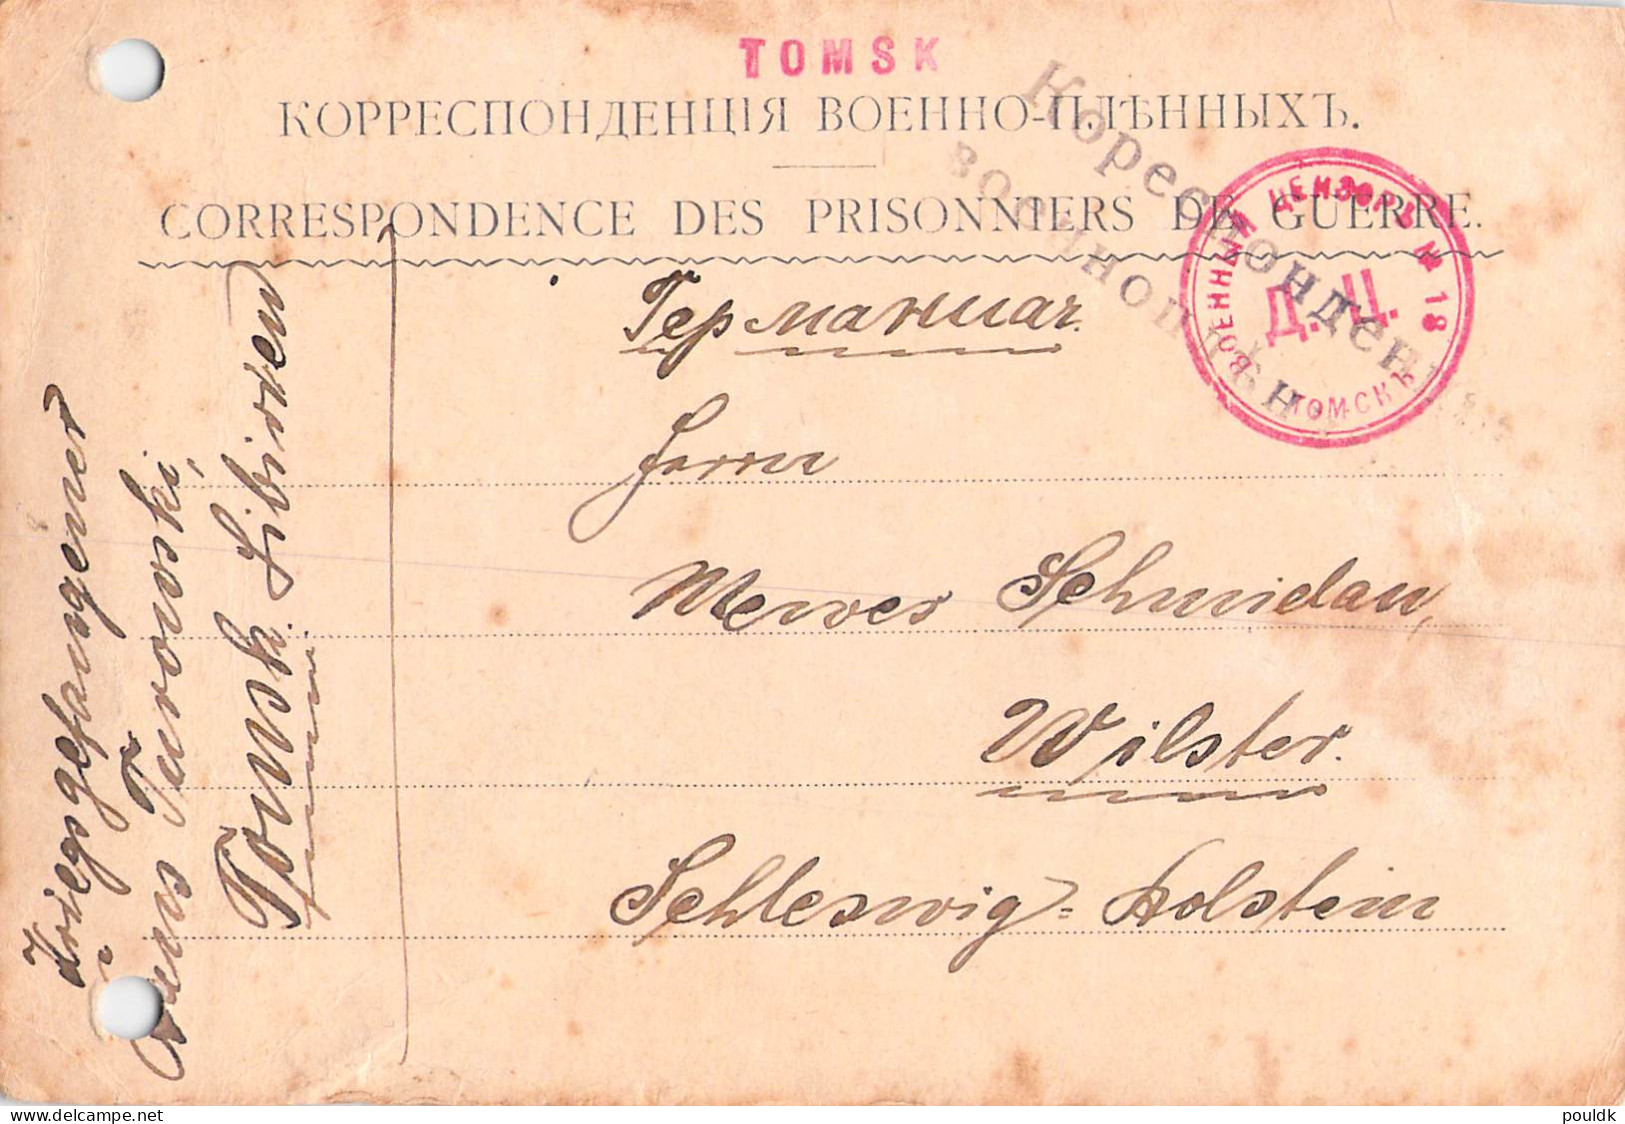 TOMSK
КОРРЕСПОНДЕНЦІЯ ВОЕННО-ПЛѢННЫХЪ.
CORRESPONDENCE DES PRISONNIERS DE GUERRE.
Кореспонденц
военноплѣн
ВОЕННЫЙ ЦЕНЗОРЪ № 18
Д. Ц.
ТОМСКЪ
Германиаг.
Herrn
Mewes Schmidau,
Wilster.
Schleswig=Holstein
Kriegsgefangener
Turowski,
Tomsk. Sibirien
pouldk